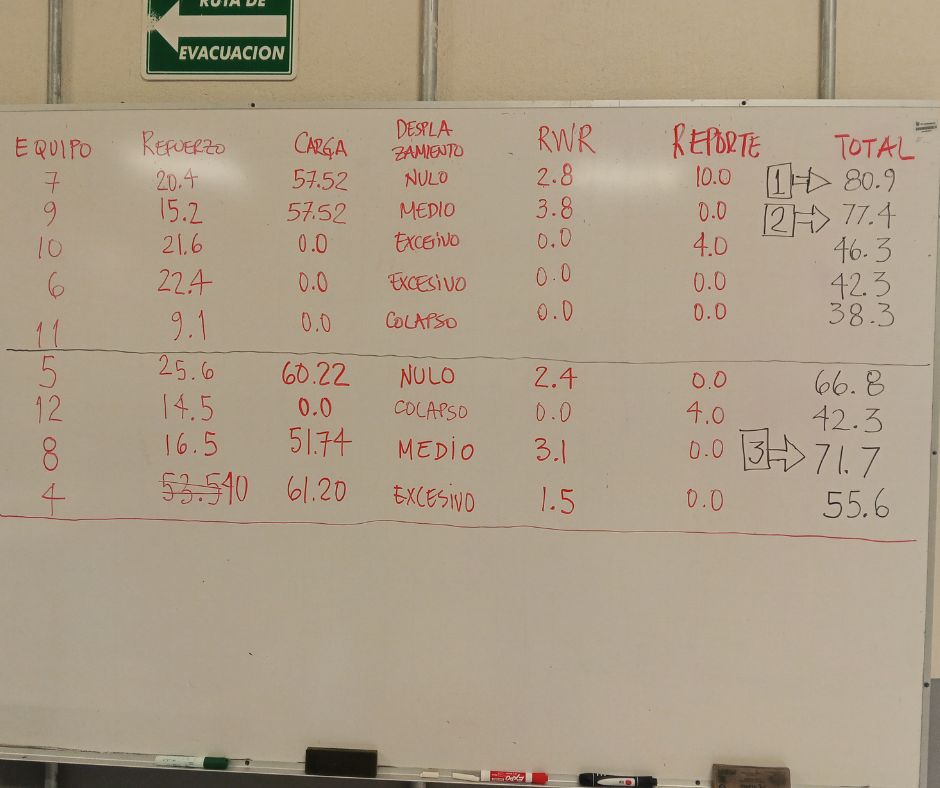 RUTA DE
EVACUACION
EQUIPO REFUERZO CARGA DESPLA ZAMIENTO RWR REPORTE TOTAL
7 20.4 57.52 NULO 2.8 10.0 1 80.9
9 15.2 57.52 MEDIO 3.8 0.0 2 77.4
10 21.6 0.0 EXCESIVO 0.0 4.0 46.3
6 22.4 0.0 EXCESIVO 0.0 0.0 42.3
11 9.1 0.0 COLAPSO 0.0 0.0 38.3
5 25.6 60.22 NULO 2.4 0.0 66.8
12 14.5 0.0 COLAPSO 0.0 4.0 42.3
8 16.5 51.74 MEDIO 3.1 0.0 3 71.7
4 53.5 40 61.20 EXCESIVO 1.5 0.0 55.6
EXPO